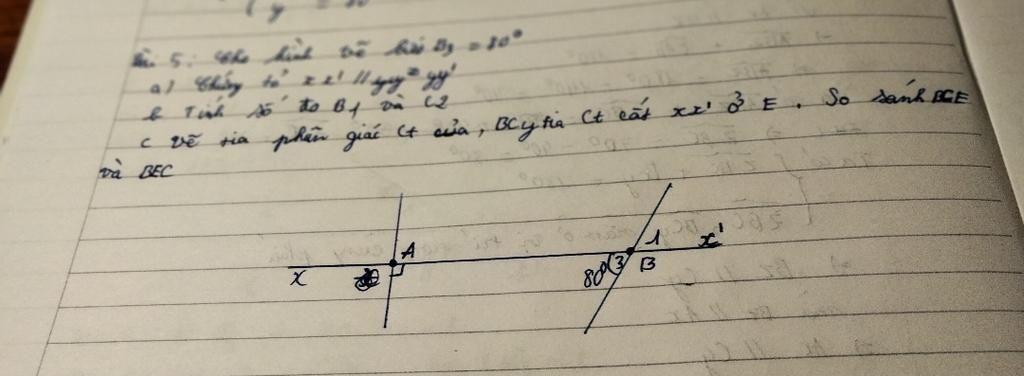 ( y = 80
Bài 5: Cho hình vẽ biết B3 = 80°
a) Chứng tỏ xx' // yy'
b Tính số đo B1 và C2
c vẽ tia phân giác Ct của, BCy tia Ct cắt xx' ở E. So sánh BCE
và BEC
A
1 x'
x 80° 3 B